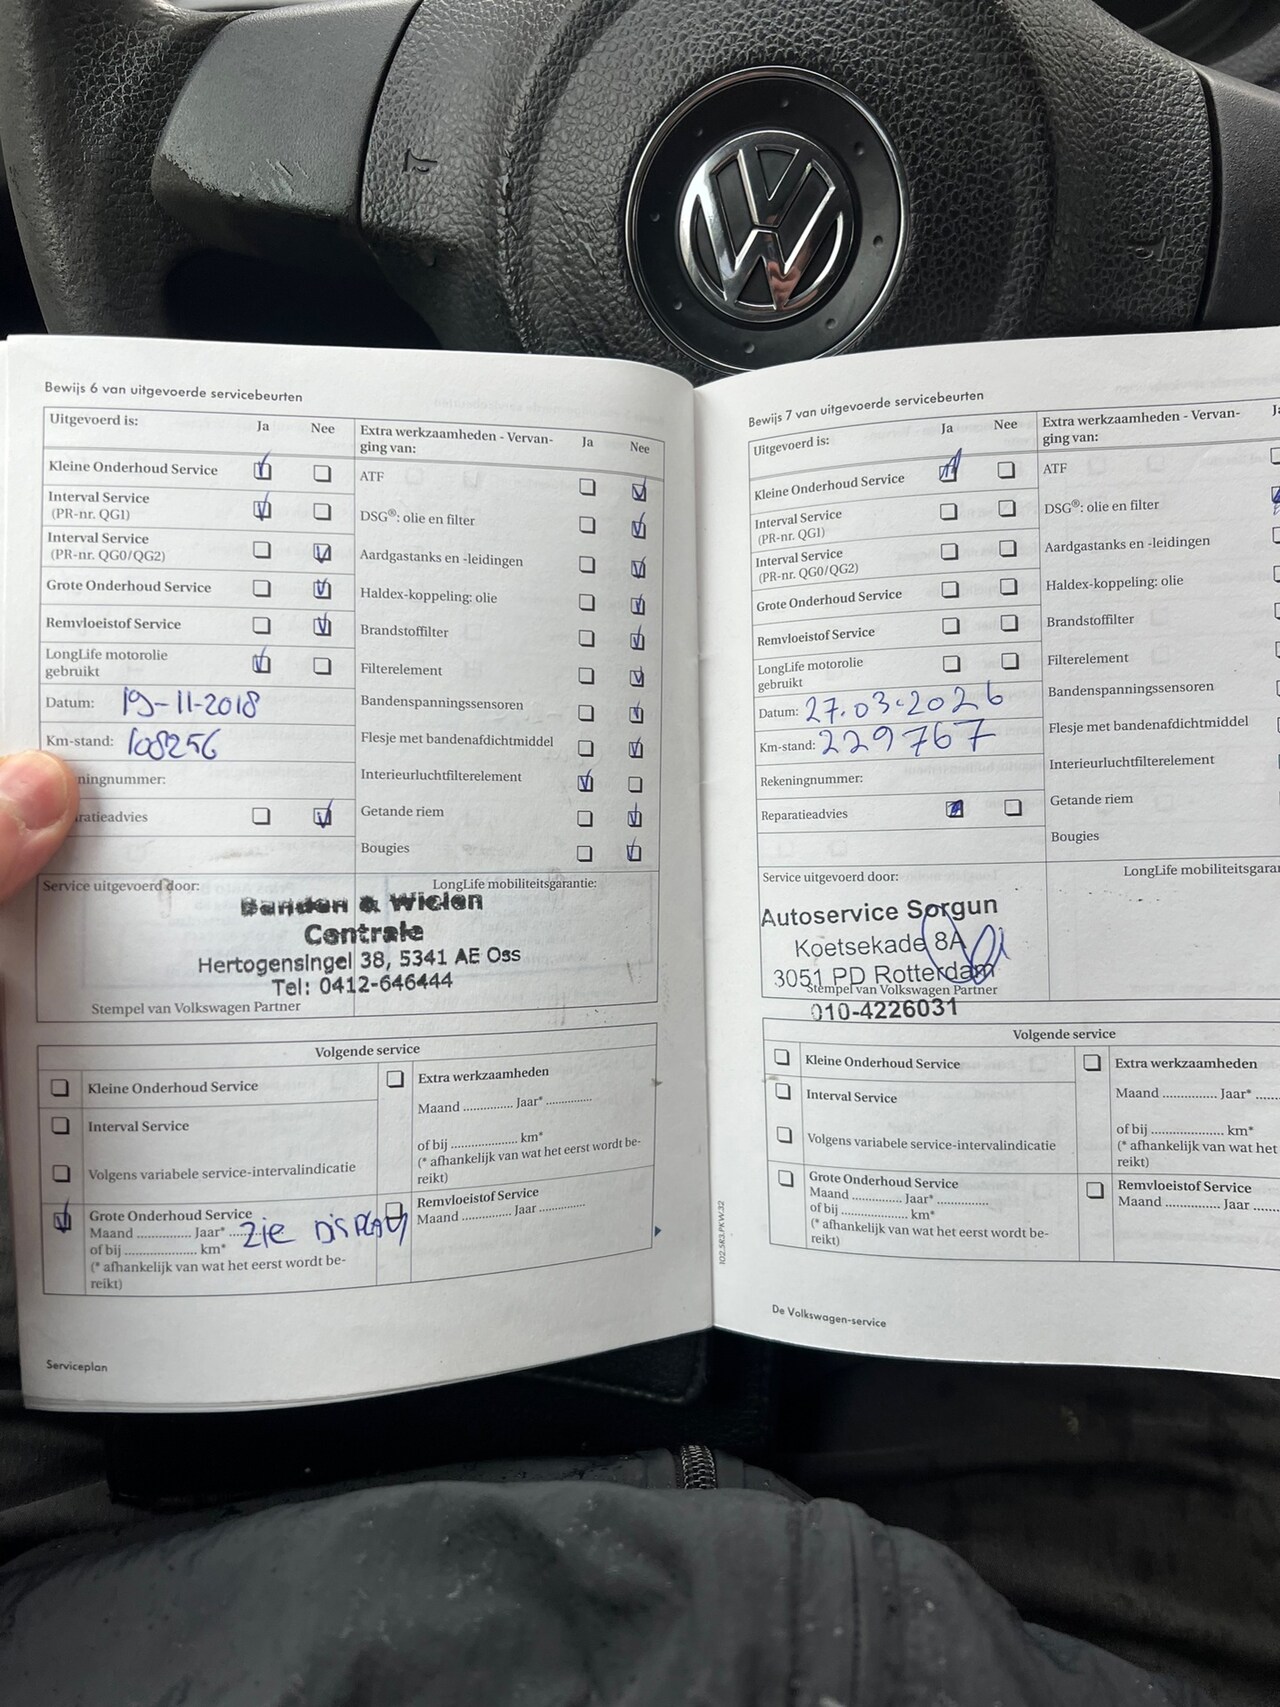 Bewijs 6 van uitgevoerde servicebeurten
Uitgevoerd is: Ja Nee
Kleine Onderhoud Service
Interval Service
(PR-nr. QG1)
Interval Service
(PR-nr. QG0/QG2)
Grote Onderhoud Service
Remvloeistof Service
LongLife motorolie
gebruikt
Datum: 19-11-2018
Km-stand: 108256
ningnummer:
ratieadvies
Extra werkzaamheden - Vervan-
ging van: Ja Nee
ATF
DSG®: olie en filter
Aardgastanks en -leidingen
Haldex-koppeling: olie
Brandstoffilter
Filterelement
Bandenspanningssensoren
Flesje met bandenafdichtmiddel
Interieurluchtfilterelement
Getande riem
Bougies
Service uitgevoerd door:
LongLife mobiliteitsgarantie:
Banden & Wielen
Centrale
Hertogensingel 38, 5341 AE Oss
Tel: 0412-646444
Stempel van Volkswagen Partner
Volgende service
Kleine Onderhoud Service
Interval Service
Volgens variabele service-intervalindicatie
Grote Onderhoud Service
Maand .............. Jaar* ......
of bij .................... km*
Zie DISPLAY
(* afhankelijk van wat het eerst wordt be-
reikt)
Extra werkzaamheden
Maand .............. Jaar* .............
of bij .................... km*
(* afhankelijk van wat het eerst wordt be-
reikt)
Remvloeistof Service
Maand .............. Jaar .............
Serviceplan
Bewijs 7 van uitgevoerde servicebeurten
Uitgevoerd is: Ja Nee
Kleine Onderhoud Service
Interval Service
(PR-nr. QG1)
Interval Service
(PR-nr. QG0/QG2)
Grote Onderhoud Service
Remvloeistof Service
LongLife motorolie
gebruikt
Datum: 27.03.2026
Km-stand: 229767
Rekeningnummer:
Reparatieadvies
Extra werkzaamheden - Vervan-
ging van:
ATF
DSG®: olie en filter
Aardgastanks en -leidingen
Haldex-koppeling: olie
Brandstoffilter
Filterelement
Bandenspanningssensoren
Flesje met bandenafdichtmiddel
Interieurluchtfilterelement
Getande riem
Bougies
Service uitgevoerd door:
LongLife mobiliteitsgaran
Autoservice Sorgun
Koetsekade 8A
3051 PD Rotterdam
Stempel van Volkswagen Partner
010-4226031
Volgende service
Kleine Onderhoud Service
Interval Service
Volgens variabele service-intervalindicatie
Grote Onderhoud Service
Maand .............. Jaar* .............
of bij .................... km*
(* afhankelijk van wat het eerst wordt be-
reikt)
Extra werkzaamheden
Maand .............. Jaar* ......
of bij .................... km*
(* afhankelijk van wat het
reikt)
Remvloeistof Service
Maand .............. Jaar ......
102.5R3.PKW.32
De Volkswagen-service